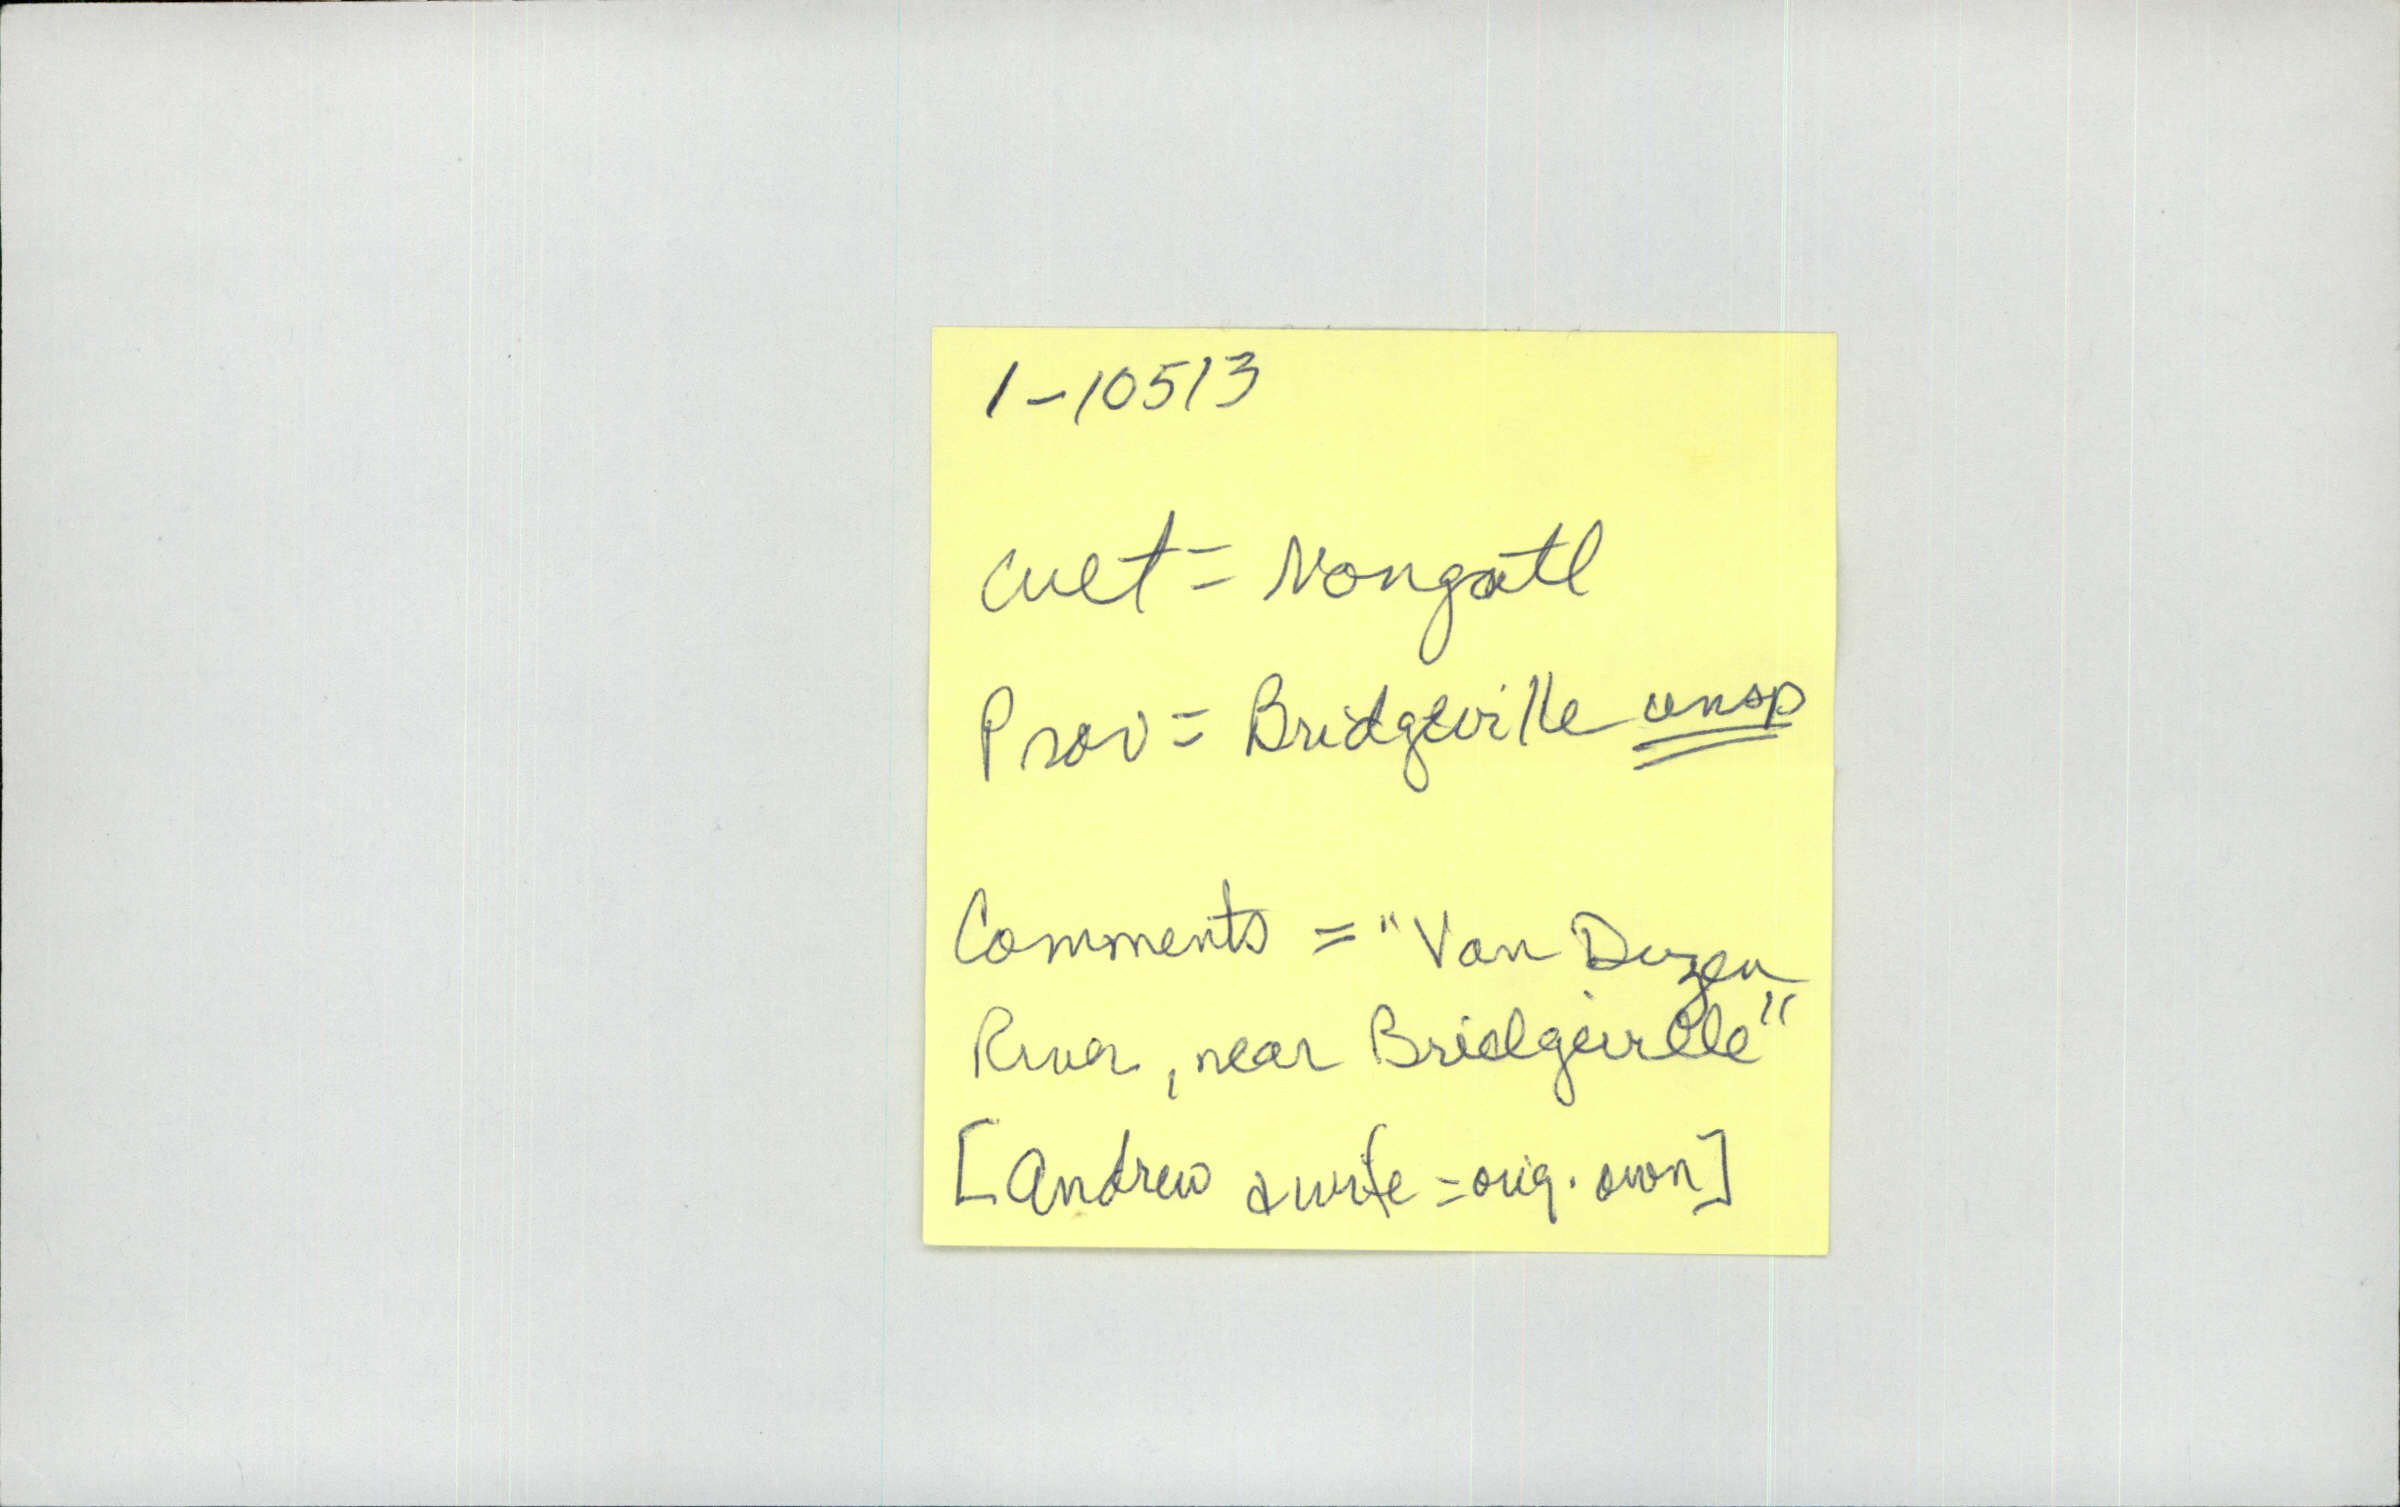 1-10513
Cult = Nongatl
Prov = Bridgeville unsp
Comments = "Van Duzen
River, near Bridgeville"
[Andrew & wife = orig. own]